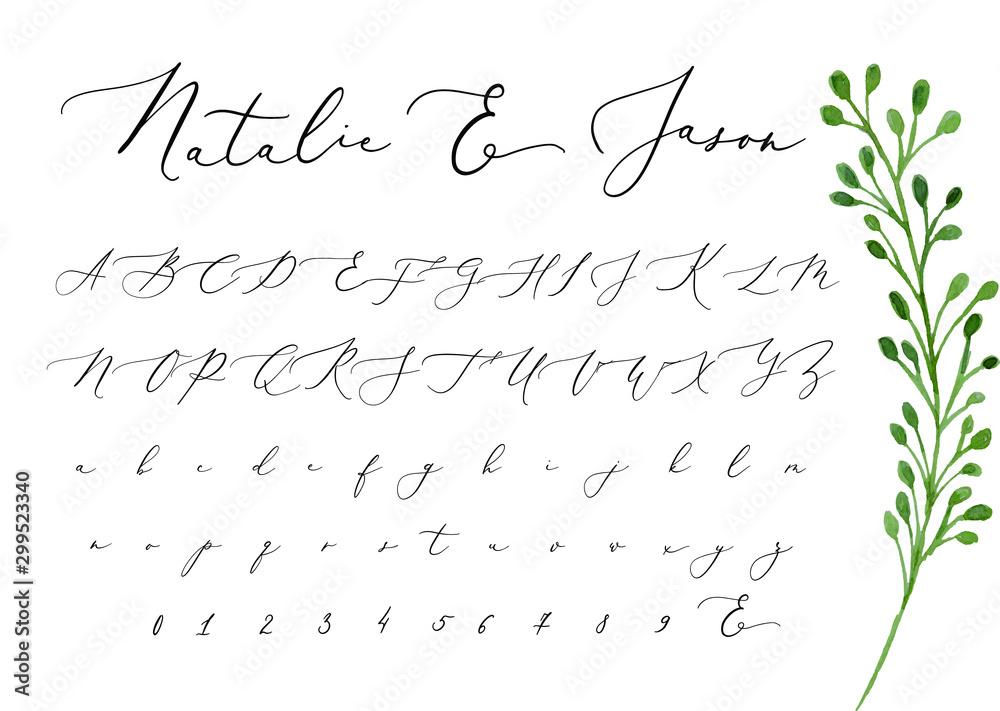 Natalie & Jason
A B C D E F G H I J K L M
N O P Q R S T U V W X Y Z
a b c d e f g h i j k l m
n o p q r s t u v w x y z
0 1 2 3 4 5 6 7 8 9 &
Adobe Stock | #299523340